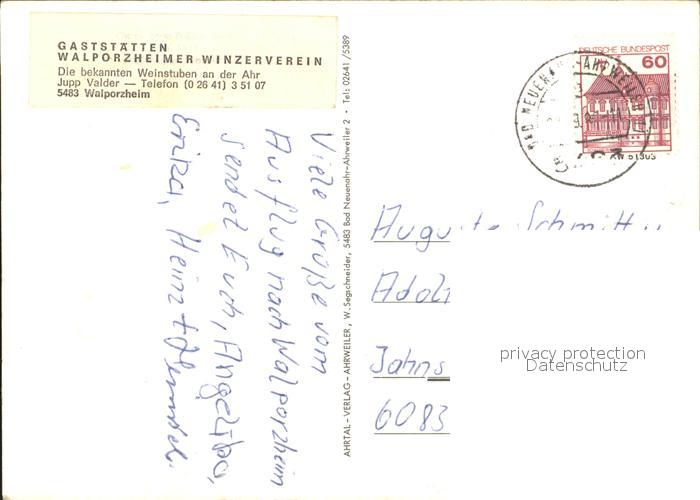 GASTSTÄTTEN
WALPORZHEIMER WINZERVEREIN
Die bekannten Weinstuben an der Ahr
Jupp Valder — Telefon (0 26 41) 3 51 07
5483 Walporzheim
Viele Grüße vom
Ausflug nach Walporzheim
sendet Euch, Angelika,
Erika, Heinz +
AHRTAL-VERLAG-AHRWEILER, W. Segschneider, 5483 Bad Neuenahr-Ahrweiler 2 · Tel: 02641/5389
DEUTSCHE BUNDESPOST
60
BAD NEUENAHR-AHRWEILER
Schmitt
Jahns
6083
privacy protection
Datenschutz